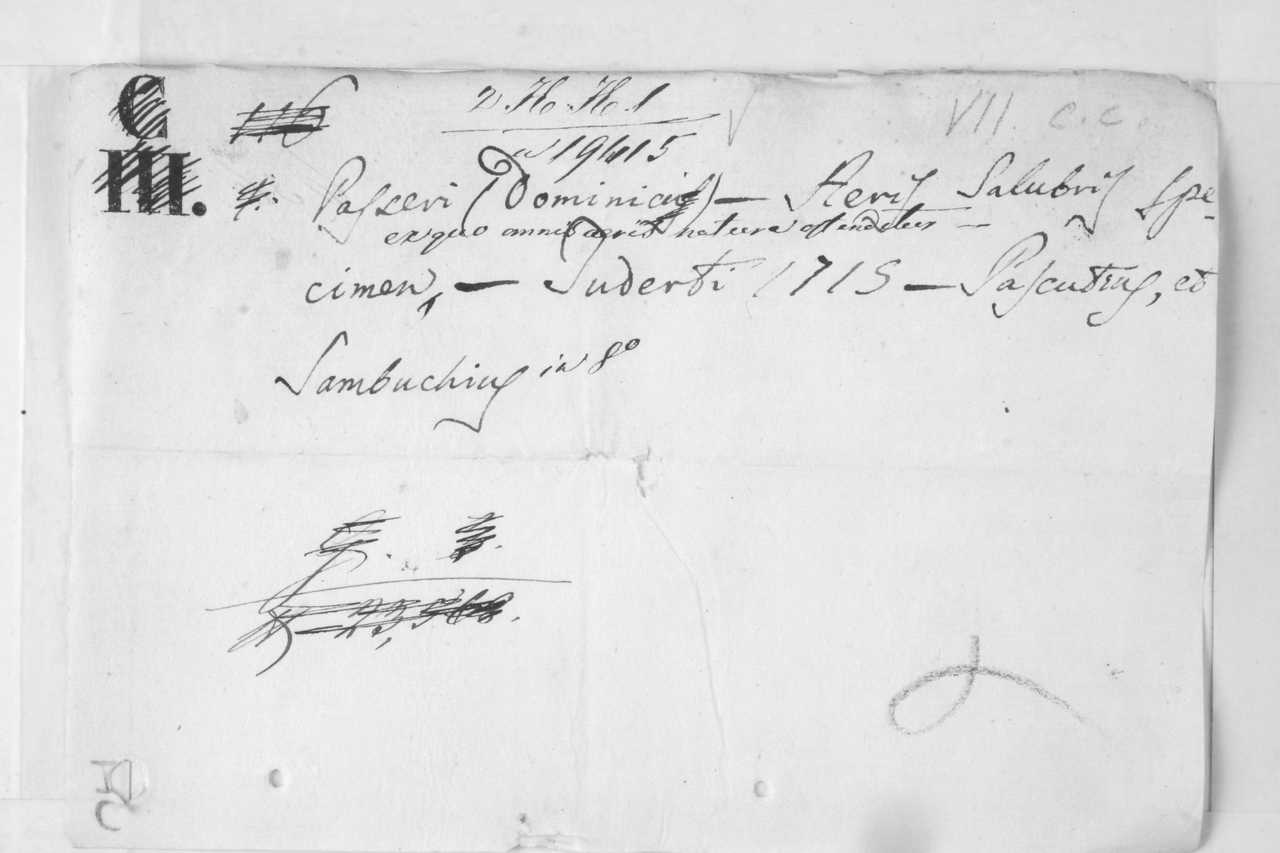 C
III.
2. H. H. 1
19415
VII. c. c.
Passeri (Dominicus) — Aeris Salubris spe-
ex quo omnis aeris natura ostenditur —
cimen, — Tuderti 1715 — Pascutius, et
Sambuchius in 8º